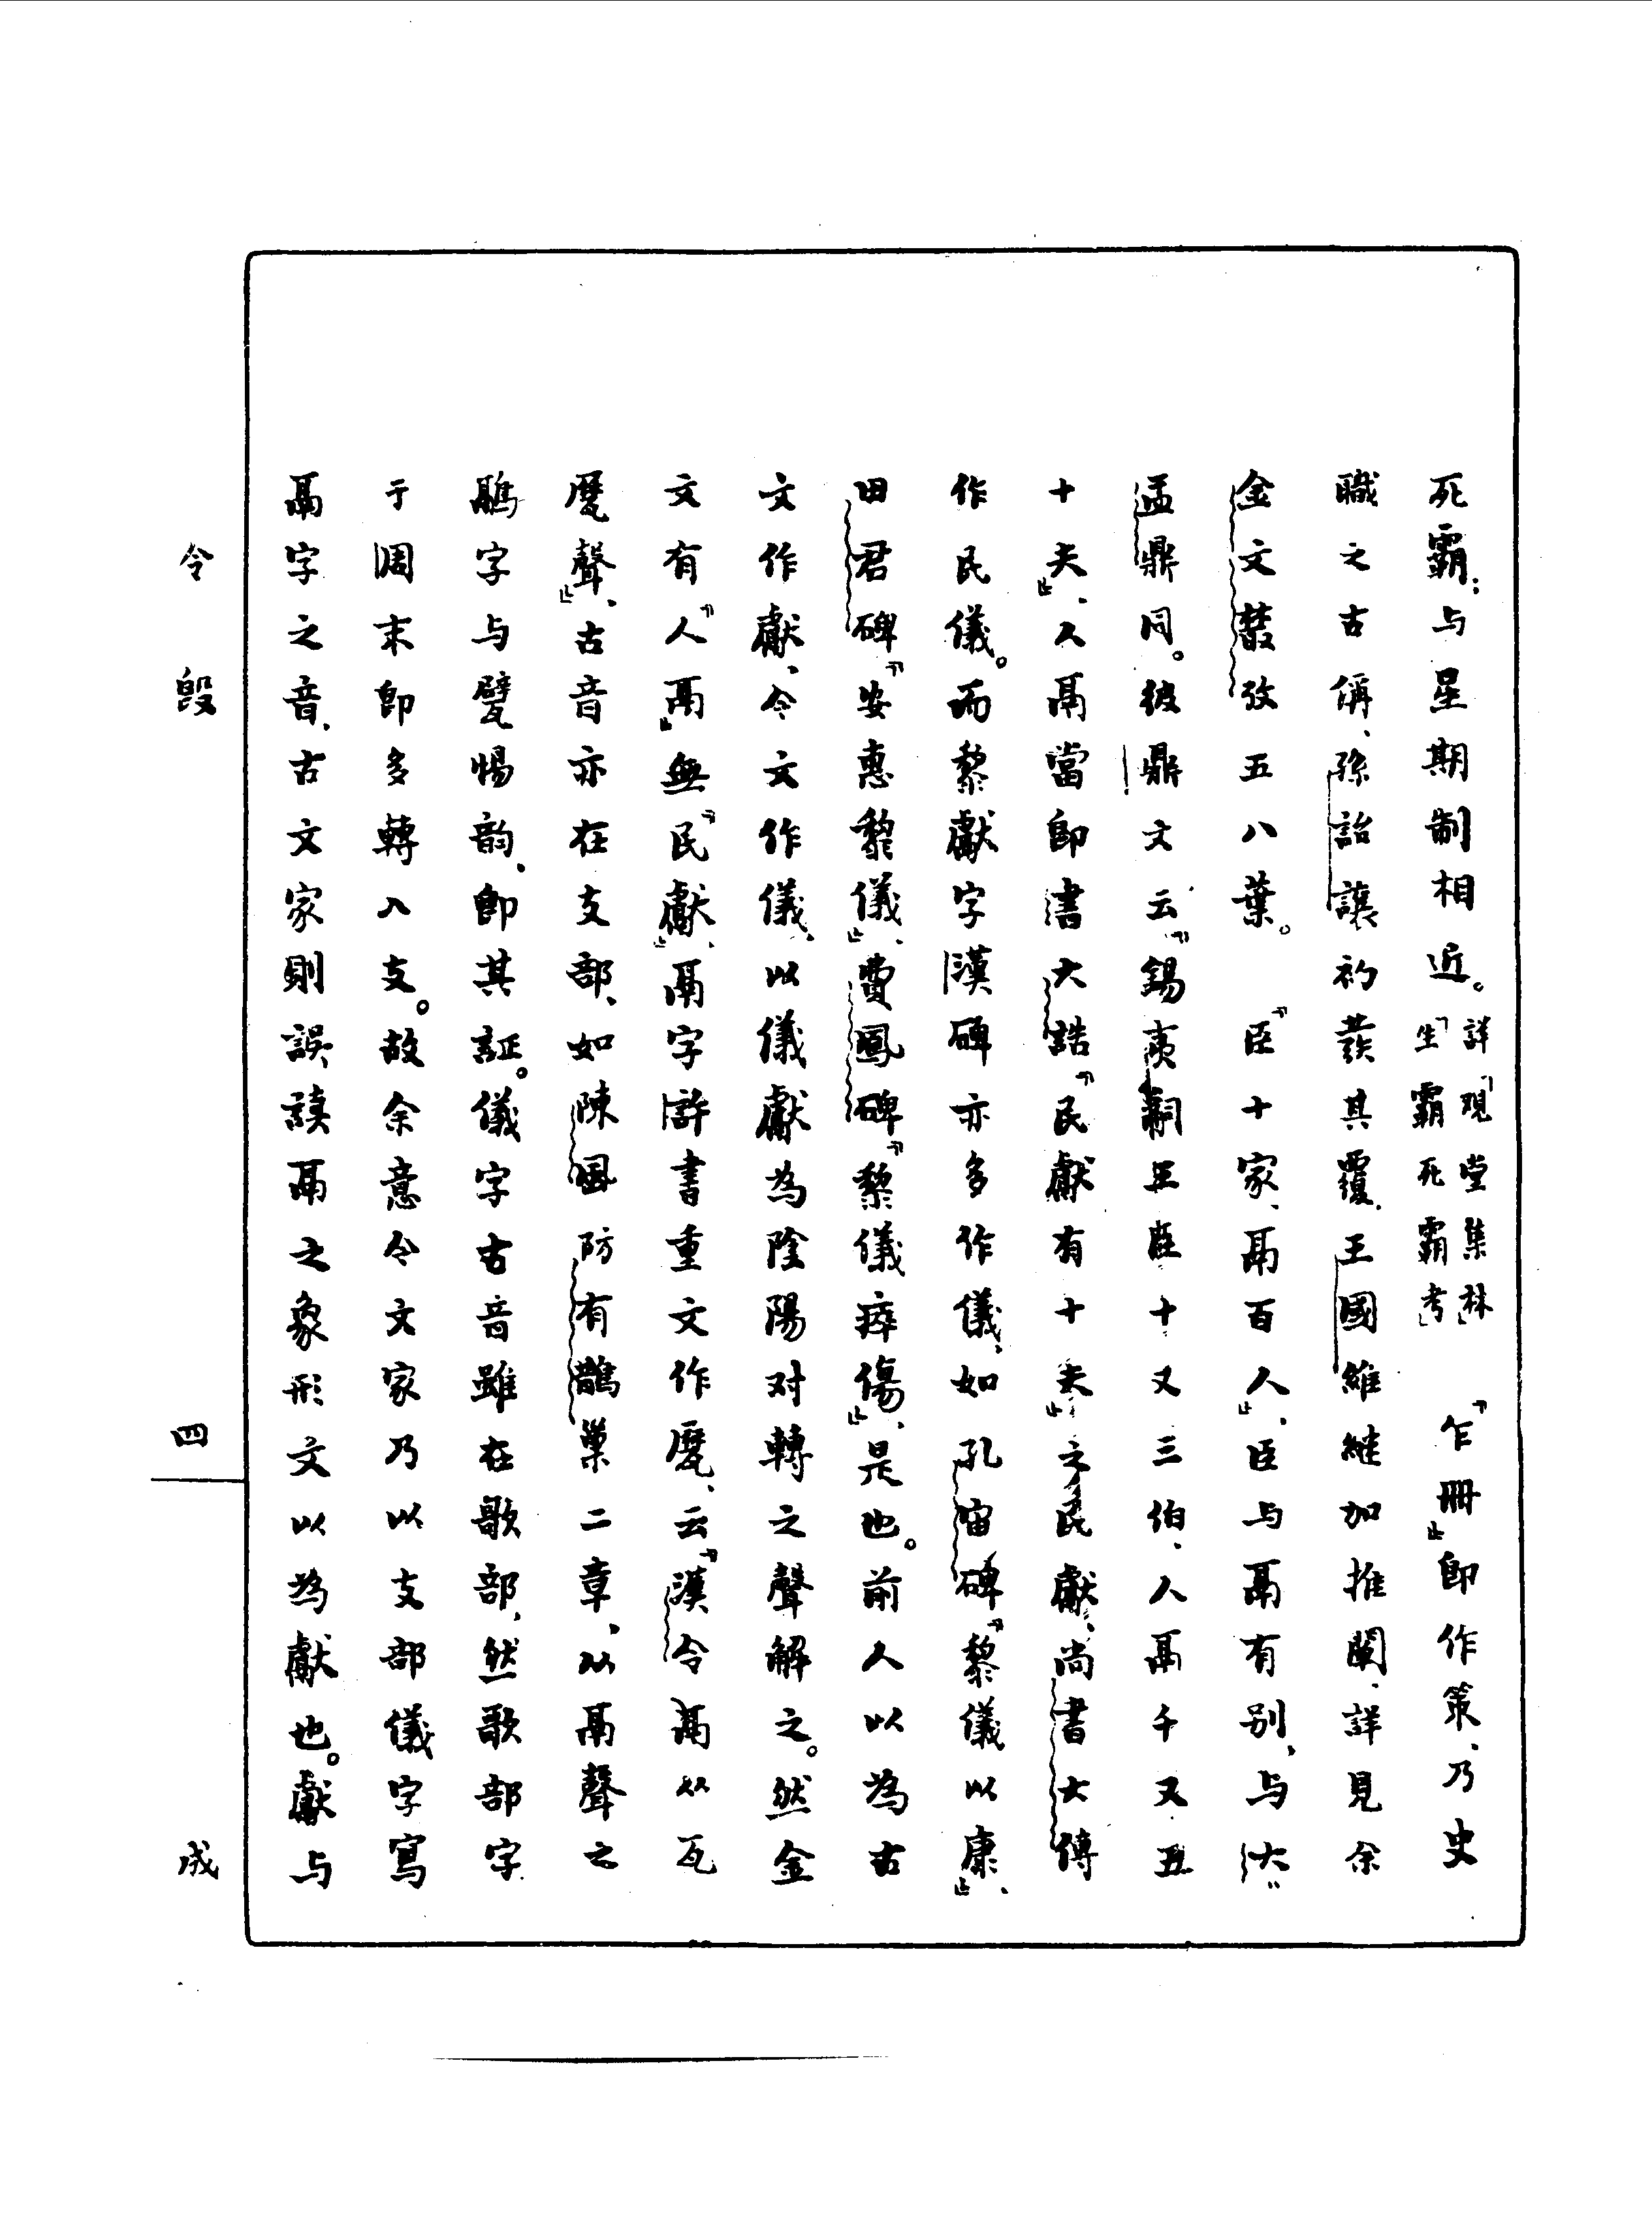 死霸；与星期制相近。詳「観堂集林」「生霸死霸考」 「乍冊」即作策、乃史
職之古偁、孫詒讓初發其覆、王國維継加推闡、詳見余
金文叢攷五八葉。 「臣十家、鬲百人」、臣与鬲有別、与大
盂鼎同。彼鼎文云「錫夷𤔲王臣十又三伯、人鬲千又五
十夫」、人鬲當即書大誥「民獻有十夫」之民獻、尚書大傳
作民儀。而黎獻字漢碑亦多作儀、如孔宙碑「黎儀以康」、
田君碑「安惠黎儀」、費鳳碑「黎儀瘁傷」、是也。前人以為古
文作獻、今文作儀、以儀獻為陰陽对轉之聲解之。然金
文有「人鬲」無「民獻」、鬲字許書重文作㽁、云「漢令鬲从瓦
厤聲」、古音亦在支部、如陳風防有鵲巢二章、以鬲聲之
鷊字与甓惕韵、即其証。儀字古音雖在歌部、然歌部字
于周末即多轉入支。故余意今文家乃以支部儀字寫
鬲字之音、古文家則誤讀鬲之象形文以為獻也。獻与
令𣪘 四 成